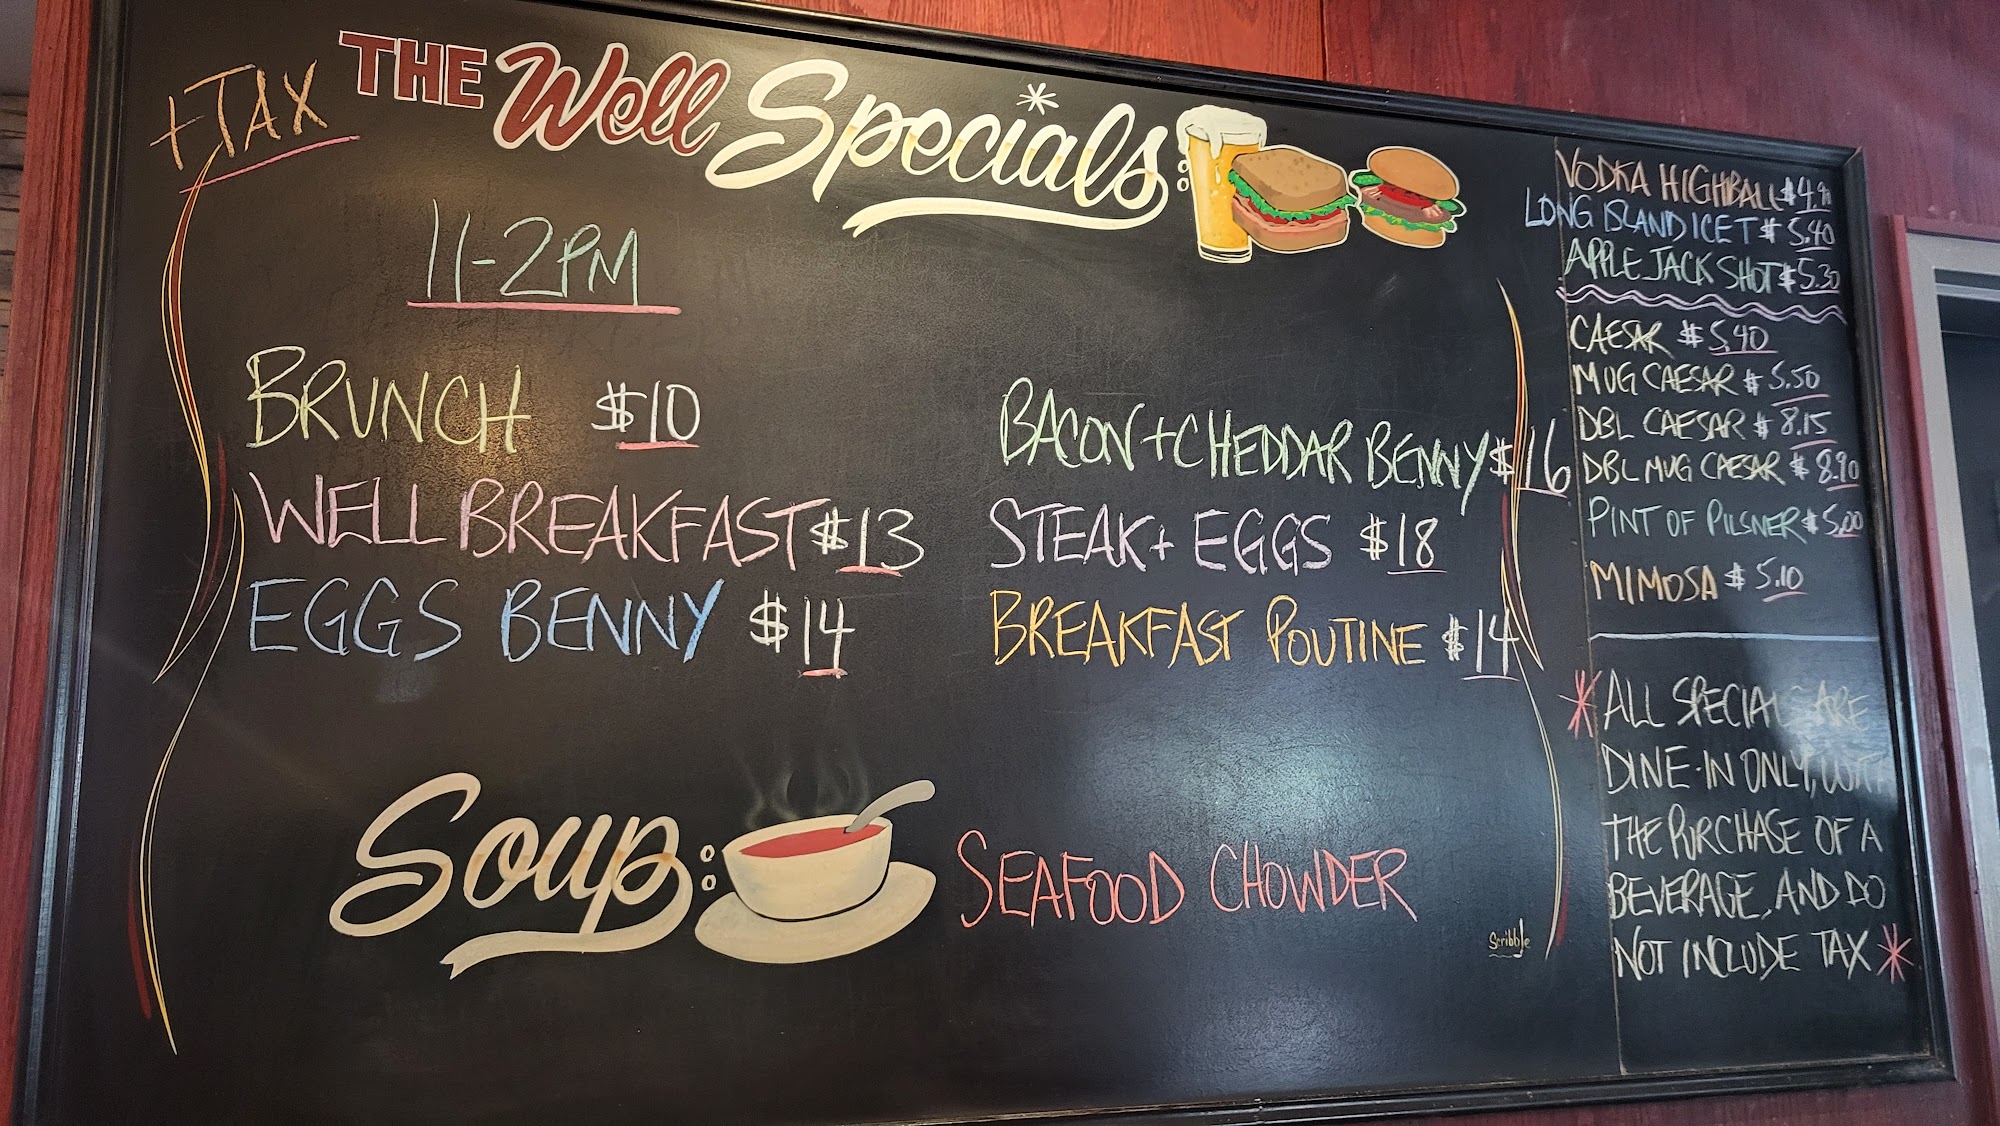 +TAX
THE Well Specials*:
11-2PM
BRUNCH $10
WELL BREAKFAST $13
EGGS BENNY $14
BACON + CHEDDAR BENNY $16
STEAK + EGGS $18
BREAKFAST POUTINE $14
Soup:
SEAFOOD CHOWDER
Scribble
VODKA HIGHBALL $4.90
LONG ISLAND ICE T $5.40
APPLE JACK SHOT $5.30
CAESAR $5.40
MUG CAESAR $5.50
DBL CAESAR $8.15
DBL MUG CAESAR $8.90
PINT OF PILSNER $5.00
MIMOSA $5.10
*ALL SPECIALS ARE
DINE-IN ONLY, WITH
THE PURCHASE OF A
BEVERAGE, AND DO
NOT INCLUDE TAX*